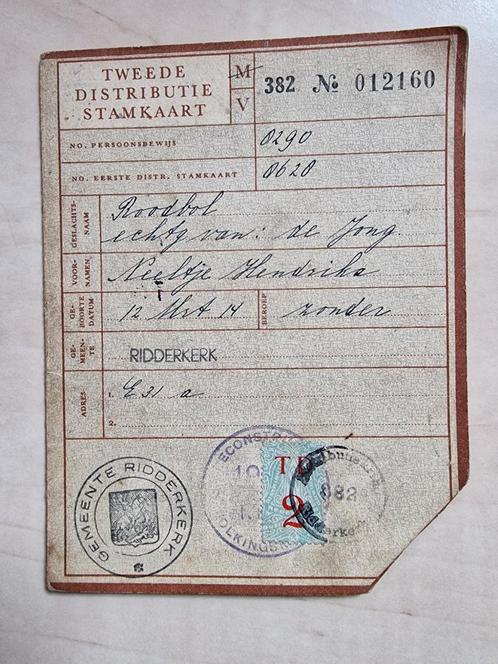 TWEEDE
DISTRIBUTIE
STAMKAART
M
V
382 № 012160
NO. PERSOONSBEWIJS
0290
NO. EERSTE DISTR. STAMKAART
0628
GESLACHTS-
NAAM
Roodbol
echtg van: de Jong
VOOR-
NAMEN
Neeltje Hendrika
GE-
BOORTE
DATUM
12 Mrt 14
BEROEP
zonder
GE-
MEEN-
TE
RIDDERKERK
ADRES
1.
E 31 a
2.
GEMEENTE RIDDERKERK
TD
2
382